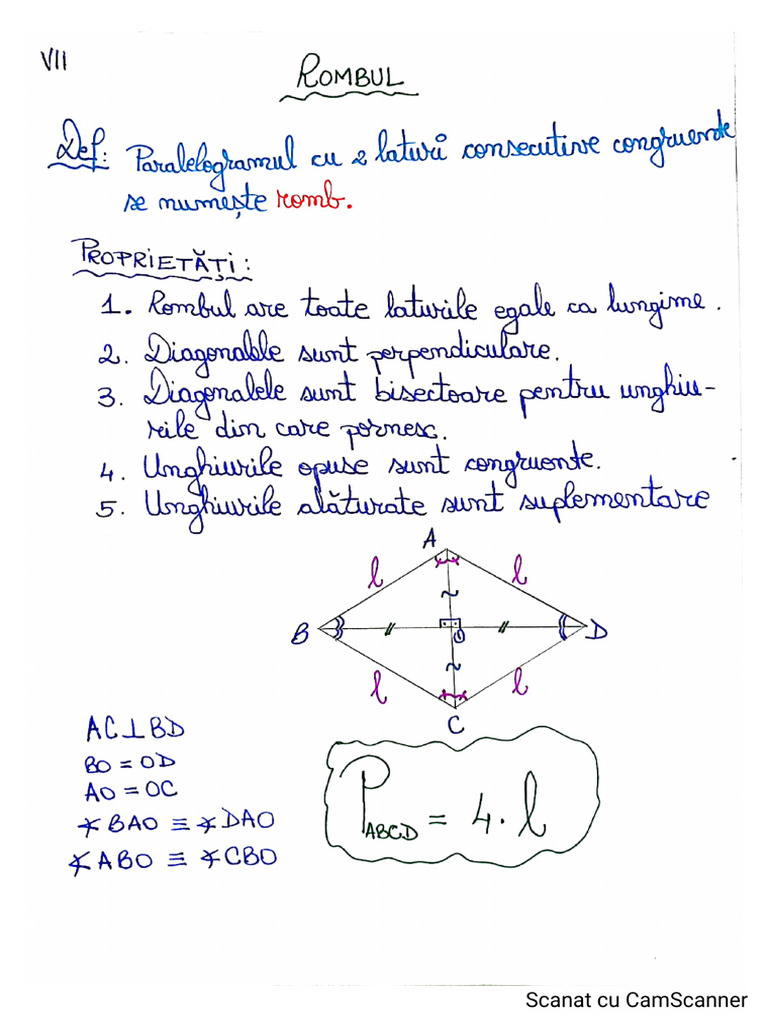 VII
ROMBUL
Def: Paralelogramul cu 2 laturi consecutive congruente
se numește romb.
PROPRIETĂȚI:
1. Rombul are toate laturile egale ca lungime.
2. Diagonalele sunt perpendiculare.
3. Diagonalele sunt bisectoare pentru unghiu-
rile din care pornesc.
4. Unghiurile opuse sunt congruente.
5. Unghiurile alăturate sunt suplementare
A
l l
B O D
l l
C
AC⊥BD
BO = OD
AO = OC
∢BAO ≡ ∢DAO
∢ABO ≡ ∢CBO
P_ABCD = 4·l
Scanat cu CamScanner